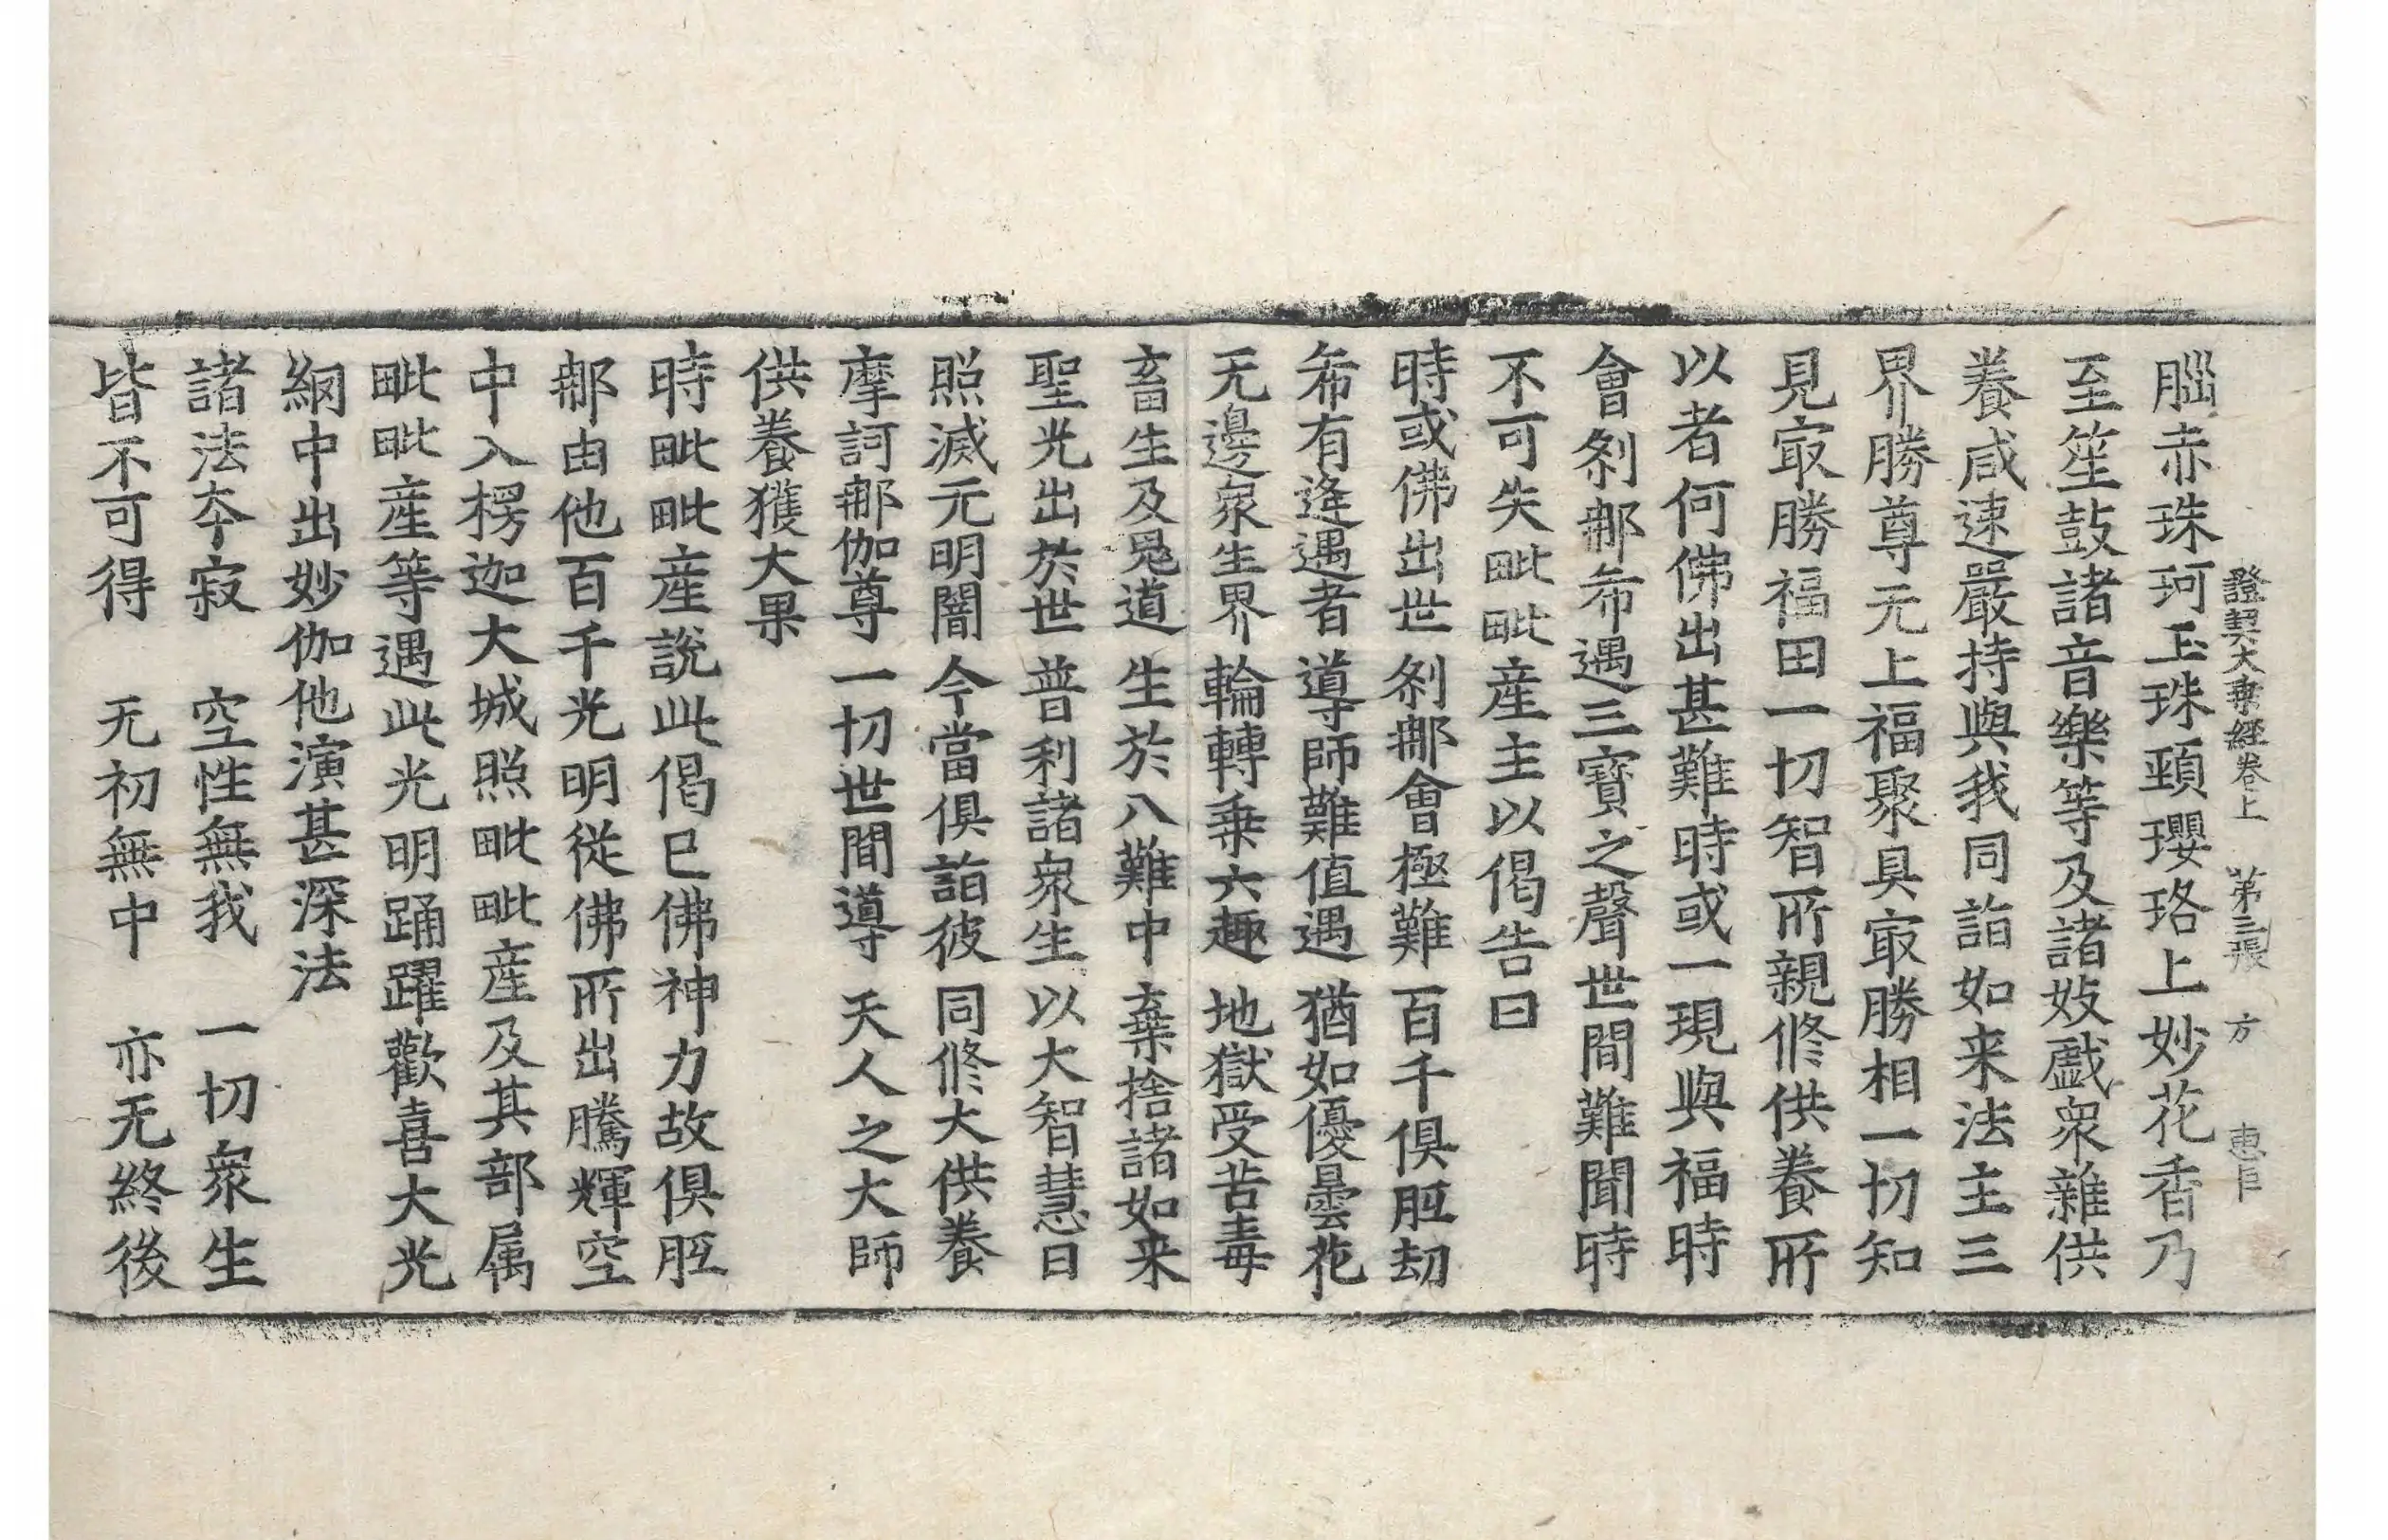 證契大乗經卷上 第三張 方 惠巨
腦赤珠珂玉珠頸瓔珞上妙花香乃
至笙鼓諸音樂等及諸妓戲衆雜供
養咸速嚴持與我同詣如来法主三
界勝尊无上福聚具㝡勝相一切知
見㝡勝福田一切智所親修供養所
以者何佛出甚難時或一現與福時
會刹那希遇三寶之聲世間難聞時
不可失毗毗産主以偈告曰
時或佛出世 刹那會極難 百千俱胝劫
希有逢遇者 導師難值遇 猶如優曇花
无邊衆生界 輪轉乗六趣 地獄受苦毒
畜生及鬼道 生於八難中 棄捨諸如来
聖光出於世 普利諸衆生 以大智慧日
照滅无明闇 今當俱詣彼 同修大供養
摩訶那伽尊 一切世間導 天人之大師
供養獲大果
時毗毗産說此偈已佛神力故俱胝
那由他百千光明從佛所出騰輝空
中入楞迦大城照毗毗産及其部属
毗毗産等遇此光明踊躍歡喜大光
網中出妙伽他演甚深法
諸法夲寂 空性無我 一切衆生
皆不可得 无初無中 亦无終後